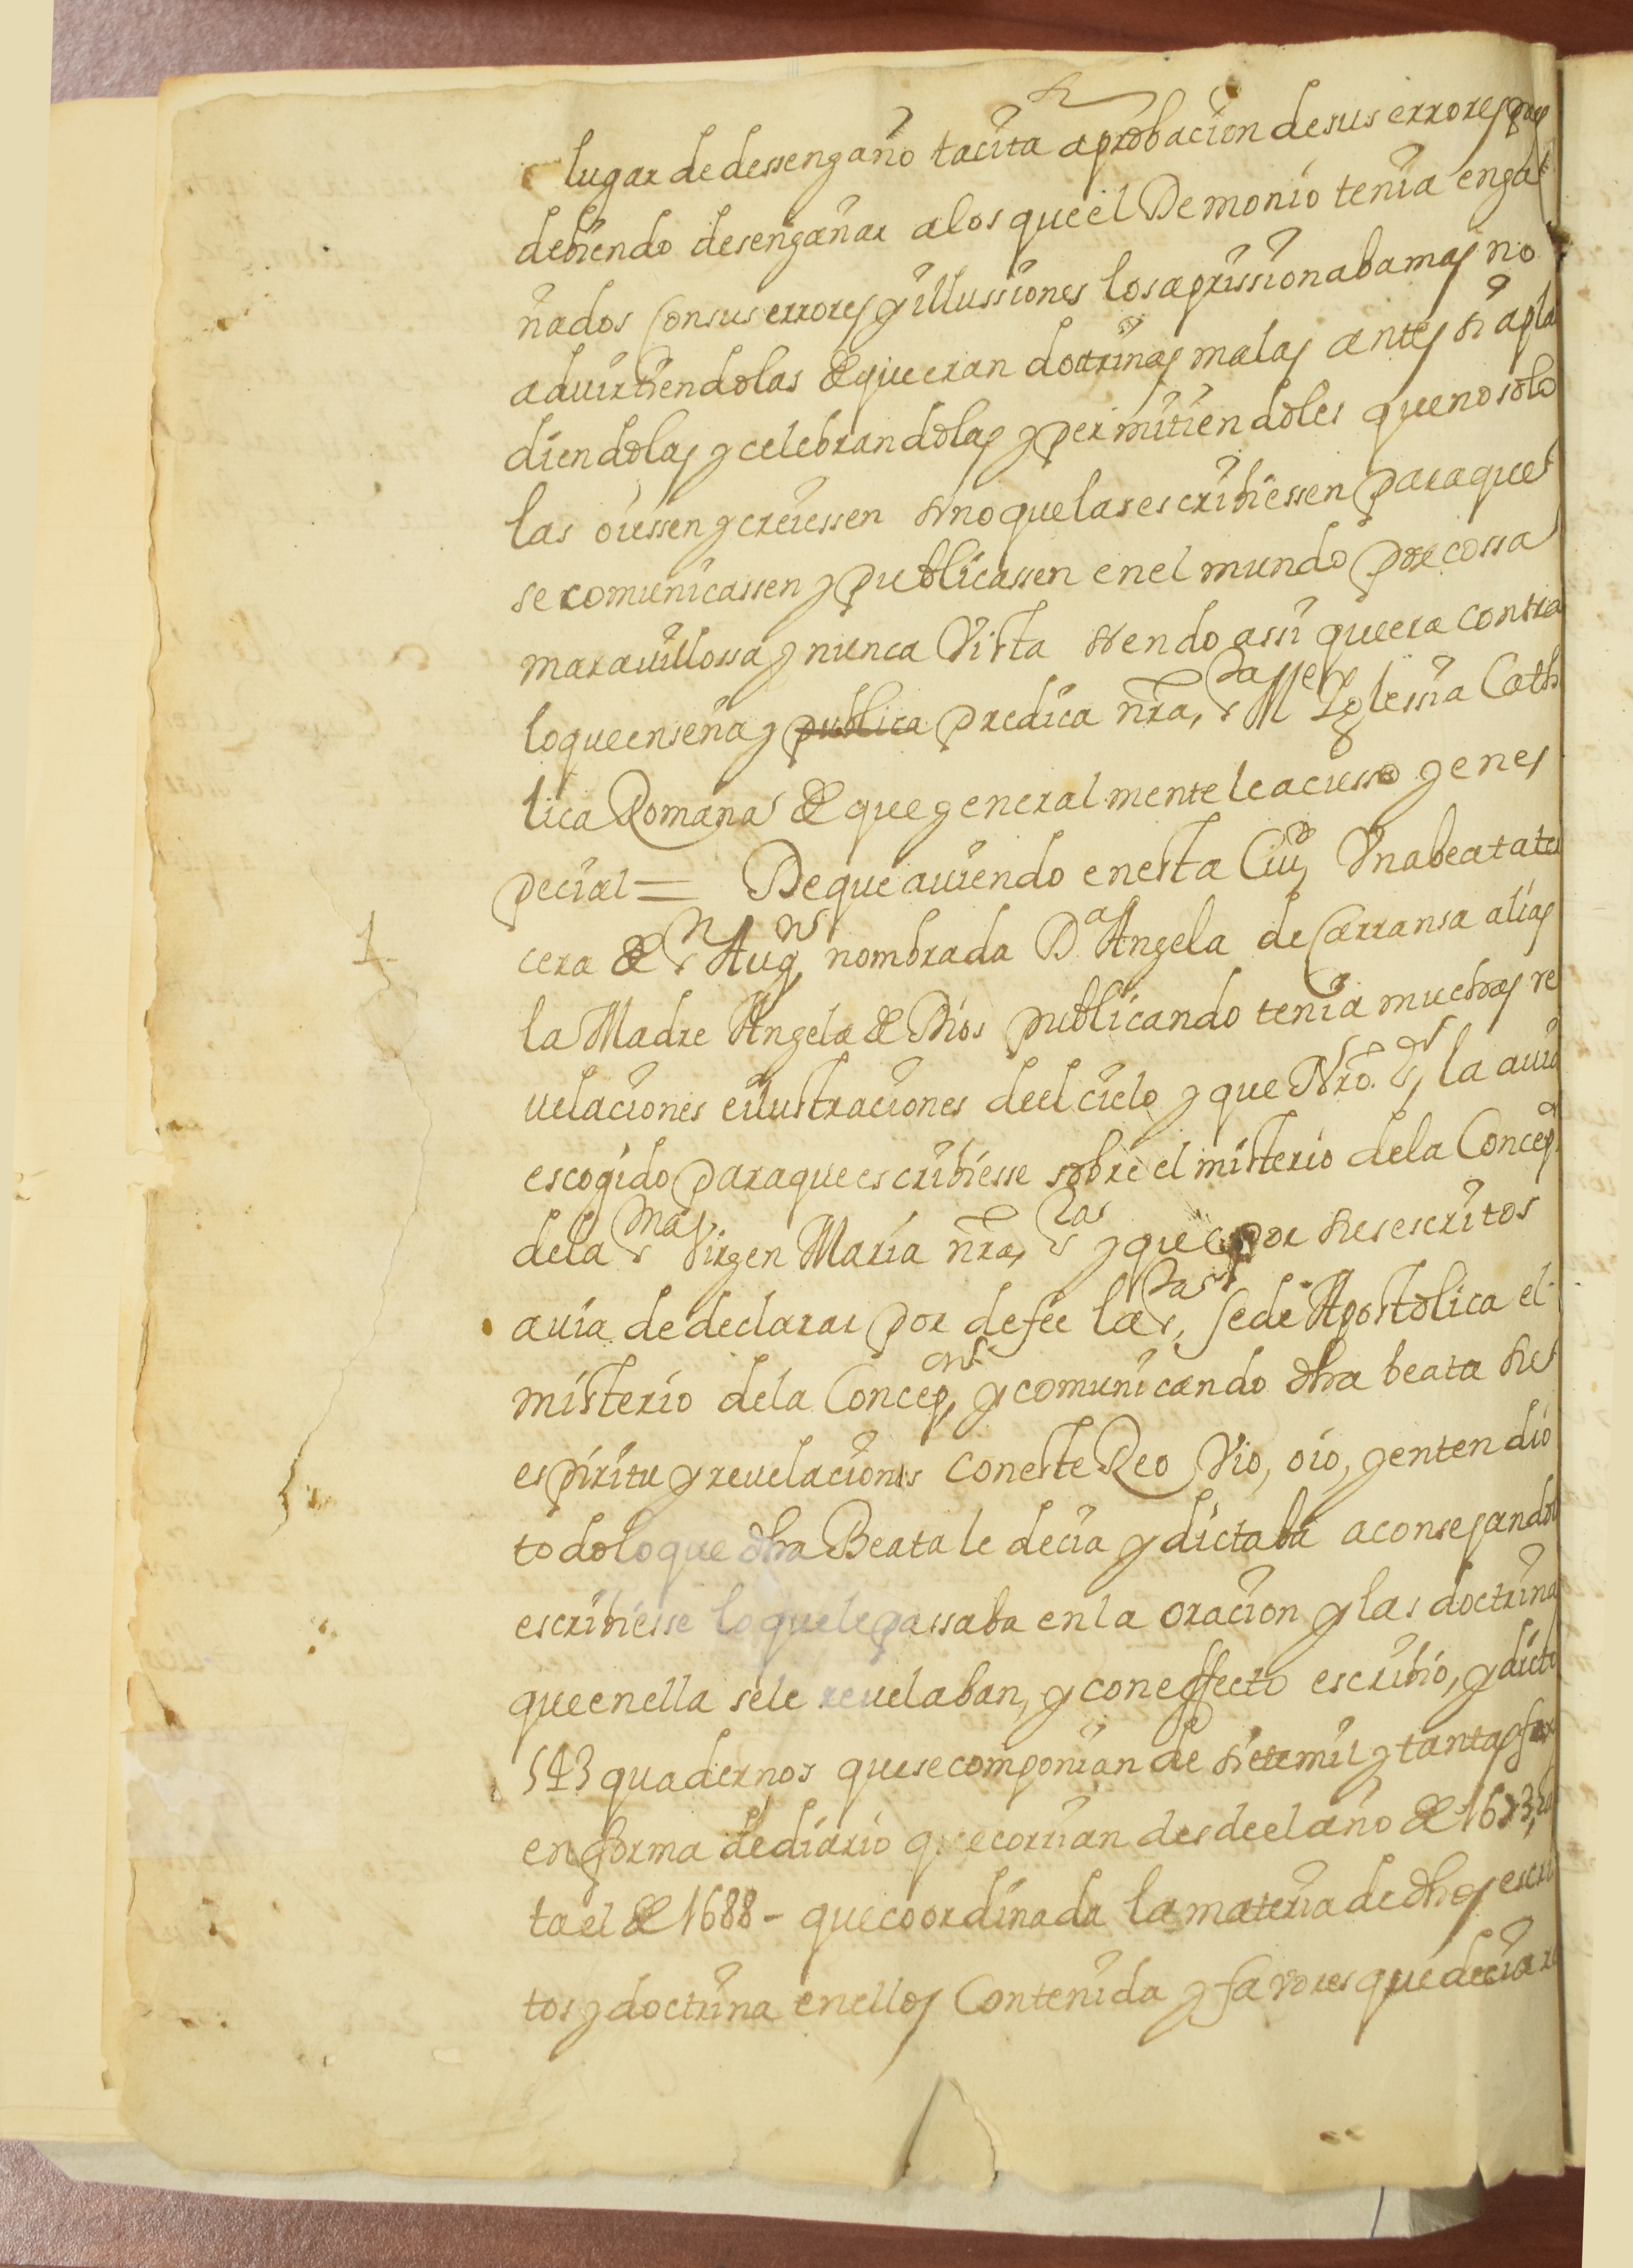 lugar de dessengaño tacita aprobacion de sus errores pues
debiendo desengañar a los que el Demonio tenia enga
ñados con sus errores y illussiones los aprissionaba mas no
advirtiendolas de que eran dotrinas malas antes si apla
diendolas y celebrandolas y permitiendoles que no solo
las oiessen y creiessen sino que las escribiessen para que
se comunicassen y publicassen en el mundo por cossa
maravillossa y nunca Vista siendo assi que era contra
lo que enseña y publica predica nra, sta Me Yglessia Catho
lica Romana de que generalmente le acusso y en es
pecial = De que aviendo en esta Ciud Una beata ter
cera de Sn Augn nombrada Da Angela de Carransa alias
la Madre Angela de Dios publicando tenia muchas re
velaciones e ilustraciones de el cielo y que Nro. Sr, la avia
escogido para que escribiesse sobre el misterio de la Concepn
de la Sma Virgen Maria nra, Sra y que por sus escritos
avia de declarar por de fee la Sta, Sede Apostolica el
misterio de la Concepon, y comunicando dha beata su
espiritu y revelaciones con este Reo Vio, oio, y entendio
todo lo que dha Beata le decia y dictaba aconsejando
escribiesse lo que le passaba en la oracion y las doctrinas
que en ella se le revelaban, y con effecto escribio, y dicto
543 quadernos que se componian de siete mil y tantas fox
en forma de diario que corrian desde el año de 1673, has
ta el de 1688 - que coordinada la materia de dhos escri
tos y doctrina en ellos Contenida y favores que decia re
1